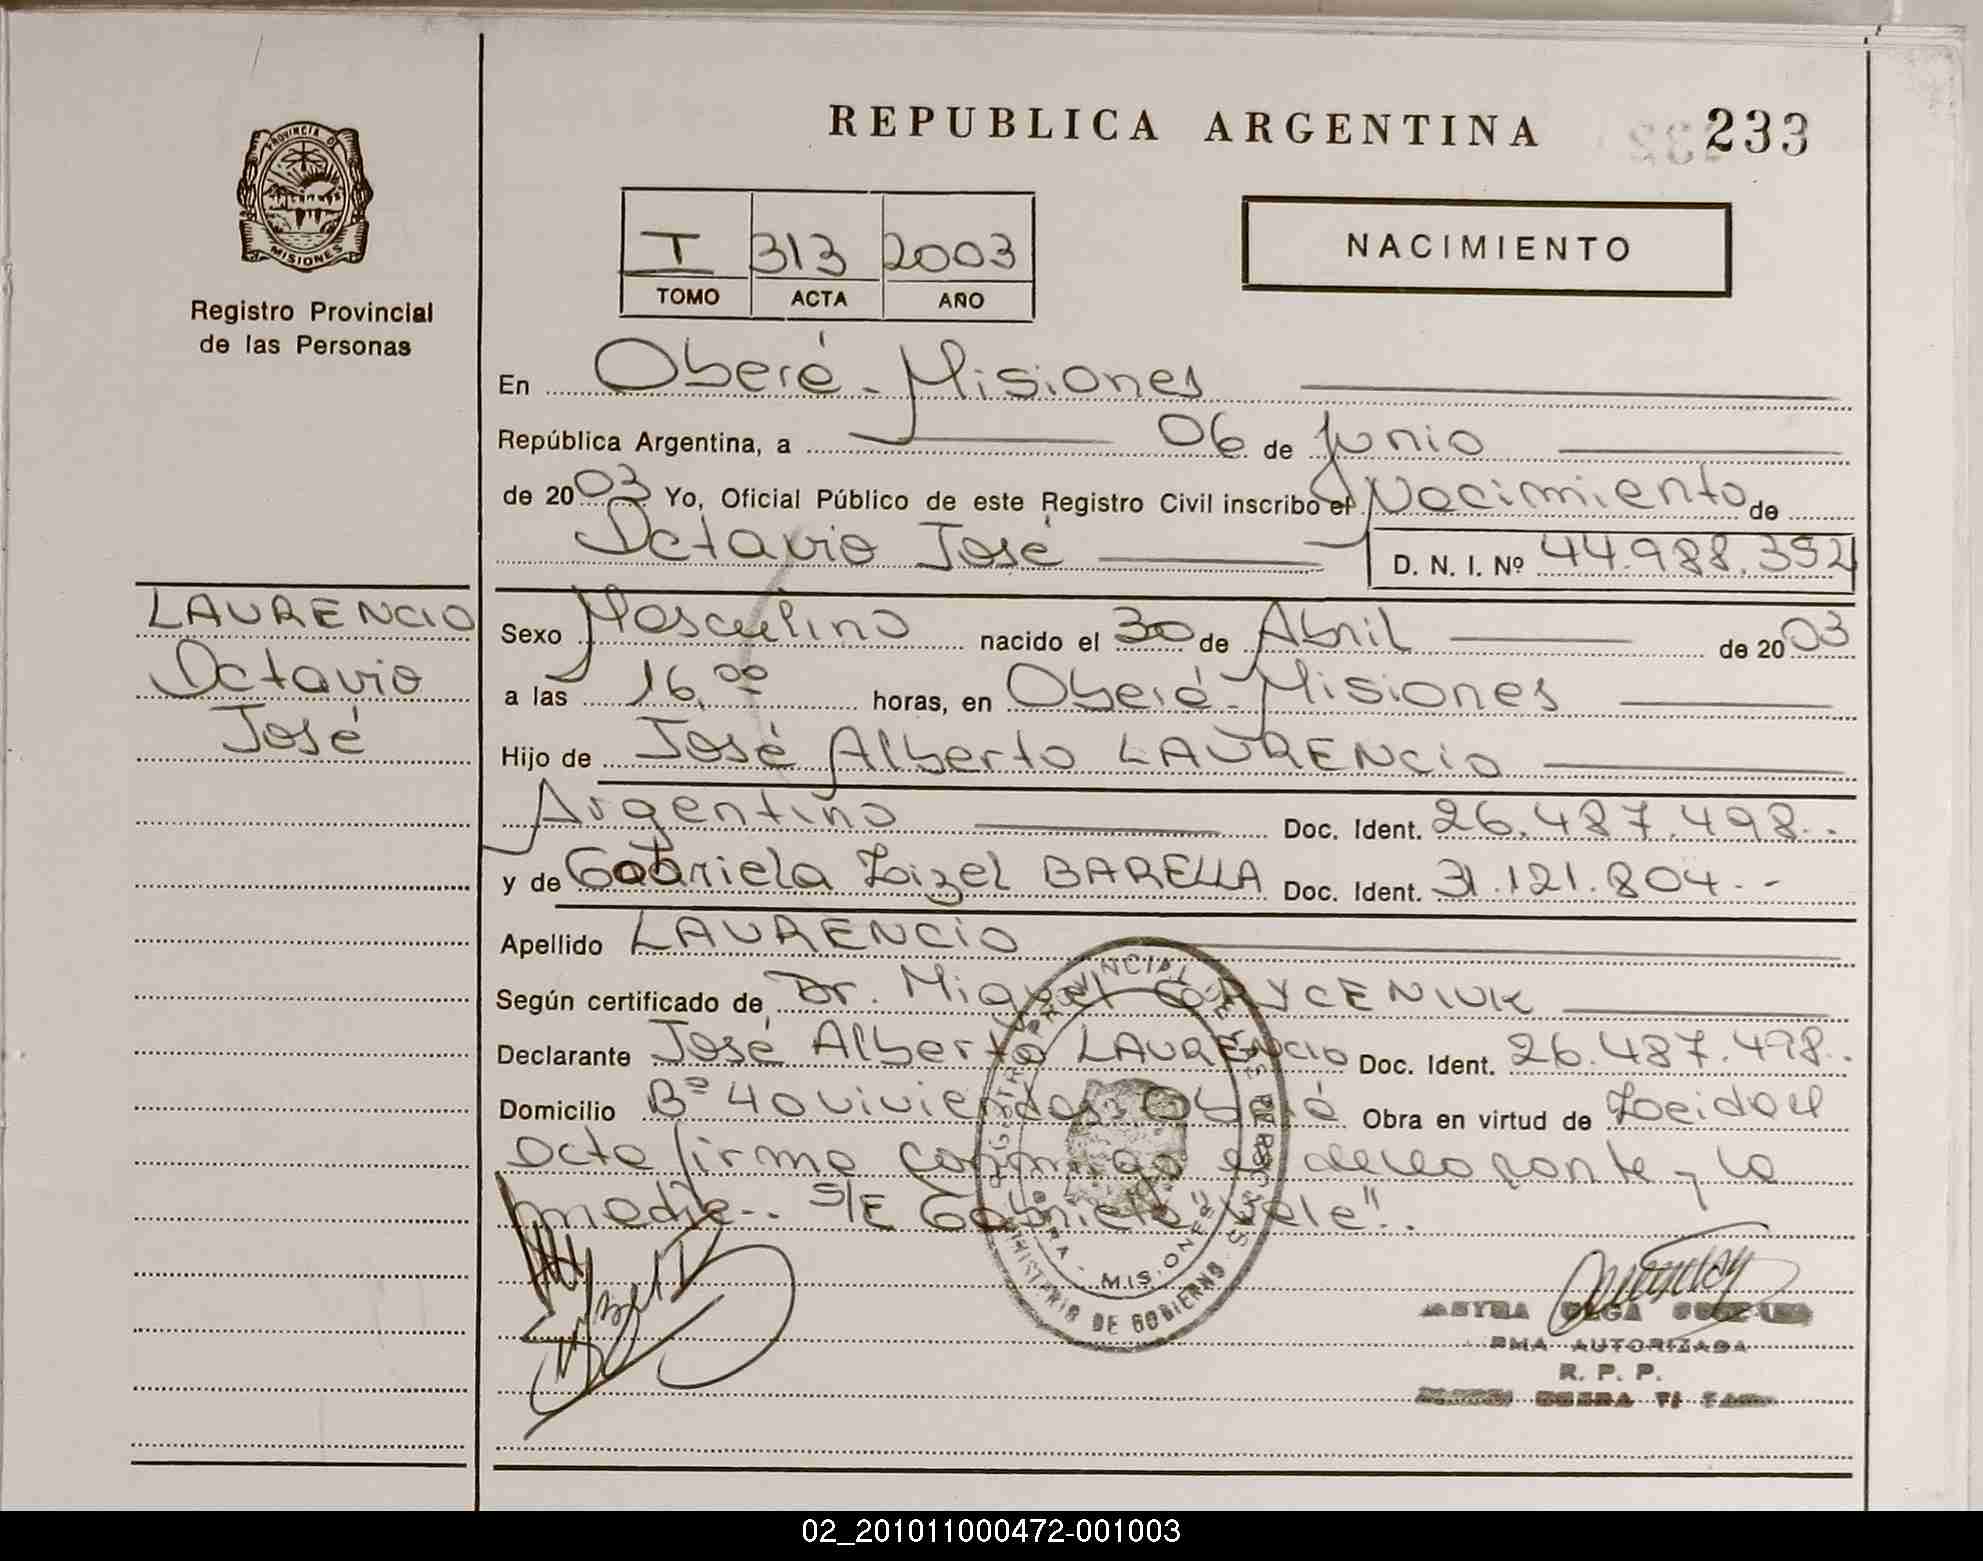 REPUBLICA ARGENTINA 233
PROVINCIA DE
MISIONES
Registro Provincial
de las Personas
NACIMIENTO
I 313 2003
TOMO ACTA AÑO
En Oberá - Misiones
República Argentina, a 06 de Junio
de 2003 Yo, Oficial Público de este Registro Civil inscribo el Nacimiento de
Octavio José D. N. I. Nº 44.988.352
LAURENCIO
Octavio
José
Sexo Masculino nacido el 30 de Abril de 2003
a las 16,00 horas, en Oberá - Misiones
Hijo de José Alberto LAURENCIO
Argentino Doc. Ident. 26.487.498..
y de Gabriela BARELLA Doc. Ident. 31.121.804.-
Apellido LAURENCIO
Según certificado de Dr. Miguel
Declarante José Alberto LAURENCIO Doc. Ident. 26.487.498..
Domicilio Bº 40 viviendas. Oberá Obra en virtud de Leida el
acta firma conmigo el declarante y la
madre.. S/E Gabriela "Vale"..
REGISTRO PROVINCIAL DE LAS PERSONAS
MINISTERIO DE GOBIERNO
MISIONES
AUTORIZADA
R. P. P.
02_201011000472-001003